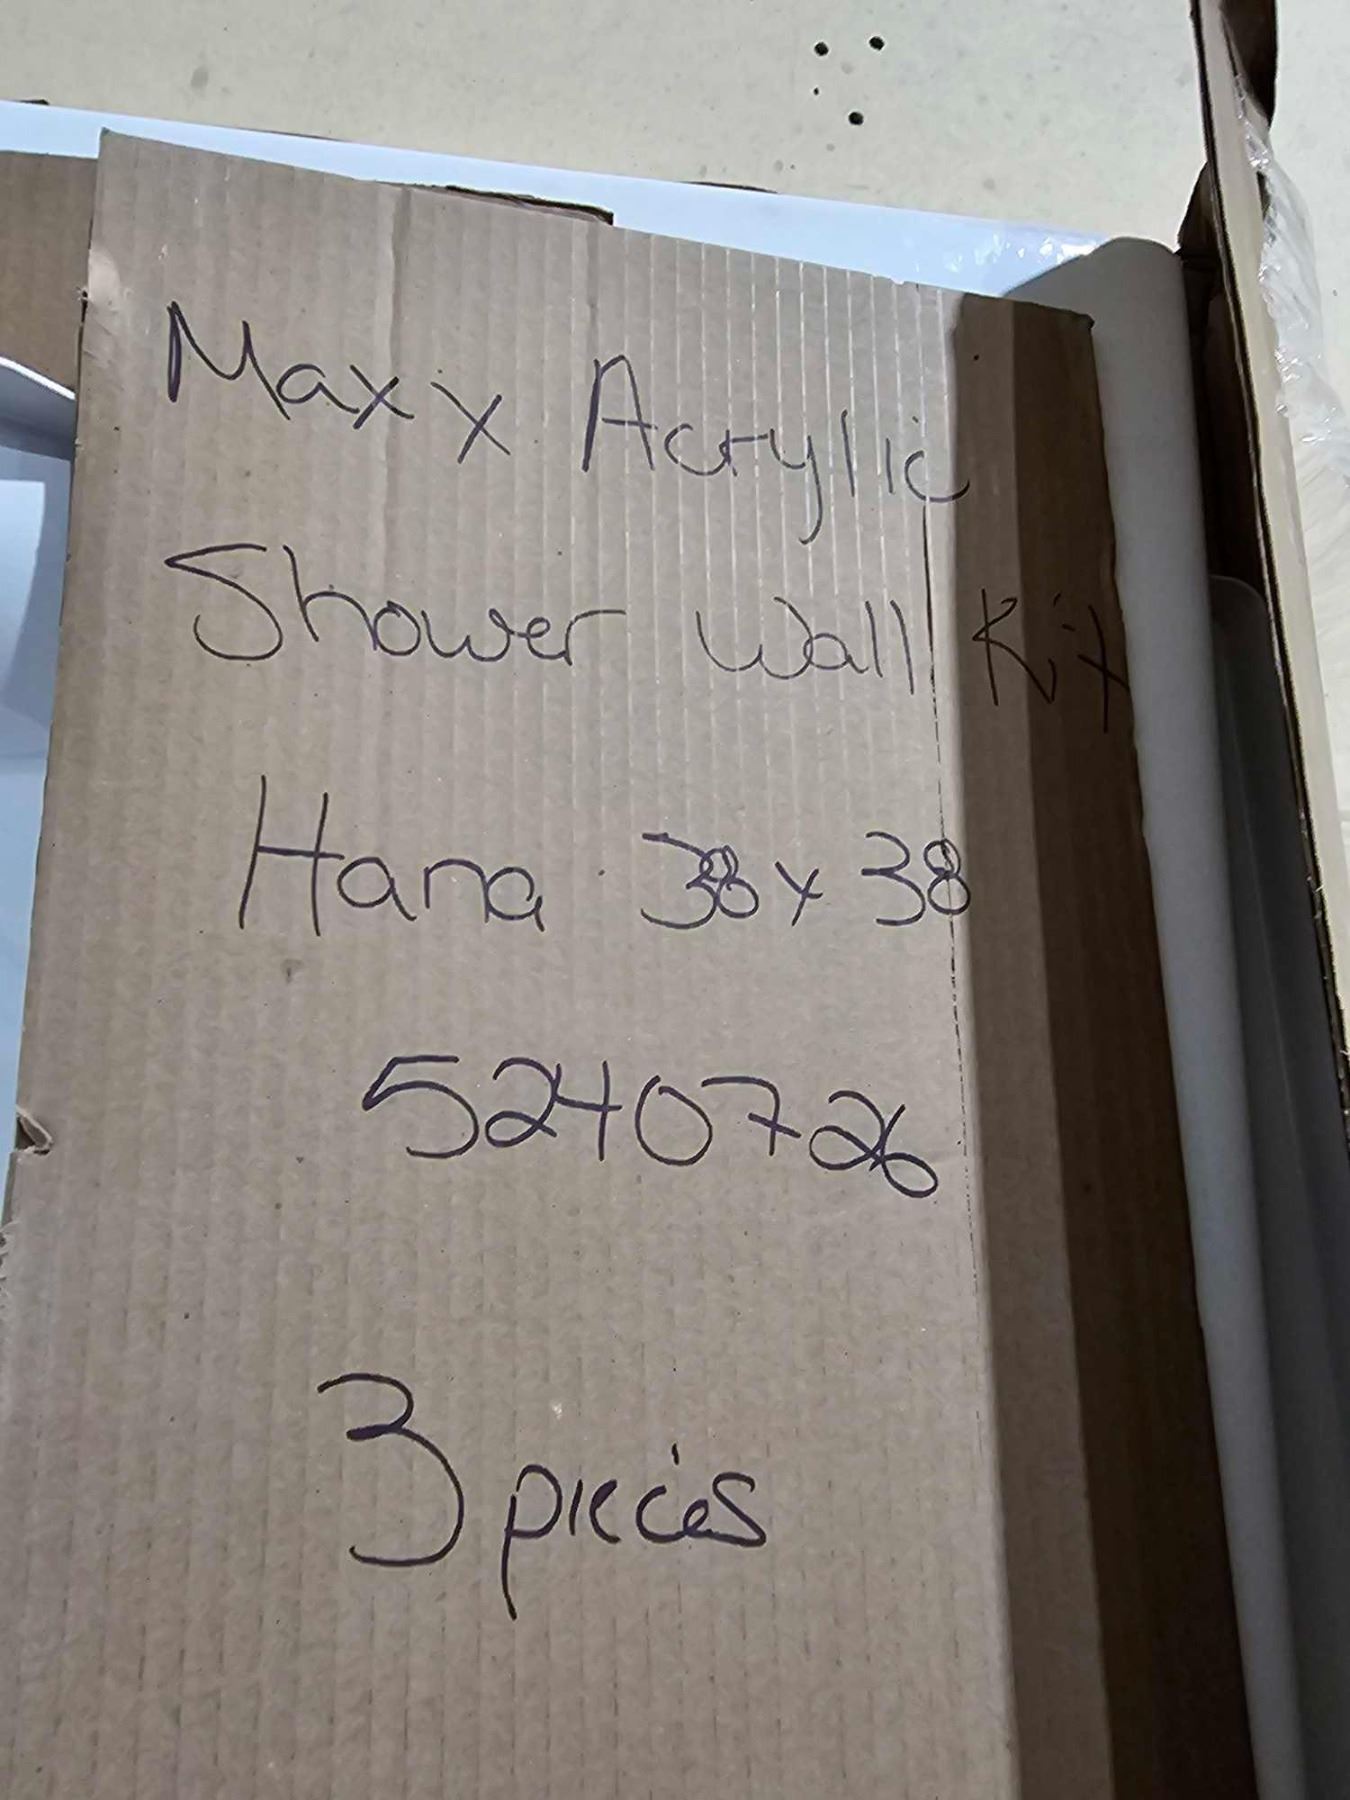 Maxx Acrylic
Shower Wall Kit
Hana 38x38
5240726
3 pieces